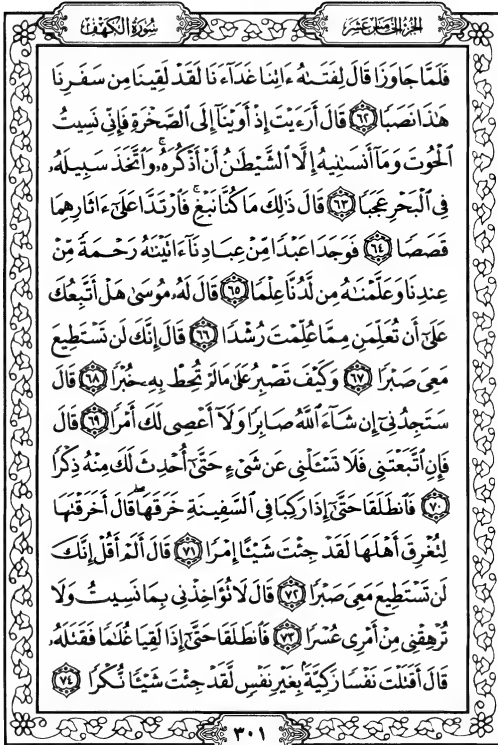 الجزء الخامس عشر
سورة الكهف
فَلَمَّا جَاوَزَا قَالَ لِفَتَىٰهُ ءَاتِنَا غَدَآءَنَا لَقَدْ لَقِينَا مِن سَفَرِنَا
هَٰذَا نَصَبًا ٦٢ قَالَ أَرَءَيْتَ إِذْ أَوَيْنَآ إِلَى ٱلصَّخْرَةِ فَإِنِّي نَسِيتُ
ٱلْحُوتَ وَمَآ أَنسَىٰنِيهُ إِلَّا ٱلشَّيْطَٰنُ أَنْ أَذْكُرَهُۥۚ وَٱتَّخَذَ سَبِيلَهُۥ
فِي ٱلْبَحْرِ عَجَبًا ٦٣ قَالَ ذَٰلِكَ مَا كُنَّا نَبْغِۚ فَٱرْتَدَّا عَلَىٰٓ ءَاثَارِهِمَا
قَصَصًا ٦٤ فَوَجَدَا عَبْدًا مِّنْ عِبَادِنَآ ءَاتَيْنَٰهُ رَحْمَةً مِّنْ
عِندِنَا وَعَلَّمْنَٰهُ مِن لَّدُنَّا عِلْمًا ٦٥ قَالَ لَهُۥ مُوسَىٰ هَلْ أَتَّبِعُكَ
عَلَىٰٓ أَن تُعَلِّمَنِ مِمَّا عُلِّمْتَ رُشْدًا ٦٦ قَالَ إِنَّكَ لَن تَسْتَطِيعَ
مَعِيَ صَبْرًا ٦٧ وَكَيْفَ تَصْبِرُ عَلَىٰ مَا لَمْ تُحِطْ بِهِۦ خُبْرًا ٦٨ قَالَ
سَتَجِدُنِيٓ إِن شَآءَ ٱللَّهُ صَابِرًا وَلَآ أَعْصِي لَكَ أَمْرًا ٦٩ قَالَ
فَإِنِ ٱتَّبَعْتَنِي فَلَا تَسْـَٔلْنِي عَن شَيْءٍ حَتَّىٰٓ أُحْدِثَ لَكَ مِنْهُ ذِكْرًا
٧٠ فَٱنطَلَقَا حَتَّىٰٓ إِذَا رَكِبَا فِي ٱلسَّفِينَةِ خَرَقَهَاۖ قَالَ أَخَرَقْتَهَا
لِتُغْرِقَ أَهْلَهَا لَقَدْ جِئْتَ شَيْـًٔا إِمْرًا ٧١ قَالَ أَلَمْ أَقُلْ إِنَّكَ
لَن تَسْتَطِيعَ مَعِيَ صَبْرًا ٧٢ قَالَ لَا تُؤَاخِذْنِي بِمَا نَسِيتُ وَلَا
تُرْهِقْنِي مِنْ أَمْرِي عُسْرًا ٧٣ فَٱنطَلَقَا حَتَّىٰٓ إِذَا لَقِيَا غُلَٰمًا فَقَتَلَهُۥ
قَالَ أَقَتَلْتَ نَفْسًا زَكِيَّةَۢ بِغَيْرِ نَفْسٍ لَّقَدْ جِئْتَ شَيْـًٔا نُّكْرًا ٧٤
٣٠١